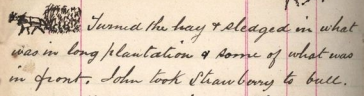 Turned the hay & sledged in what
was in long plantation & some of what was
in front. John took Strawberry to bull.